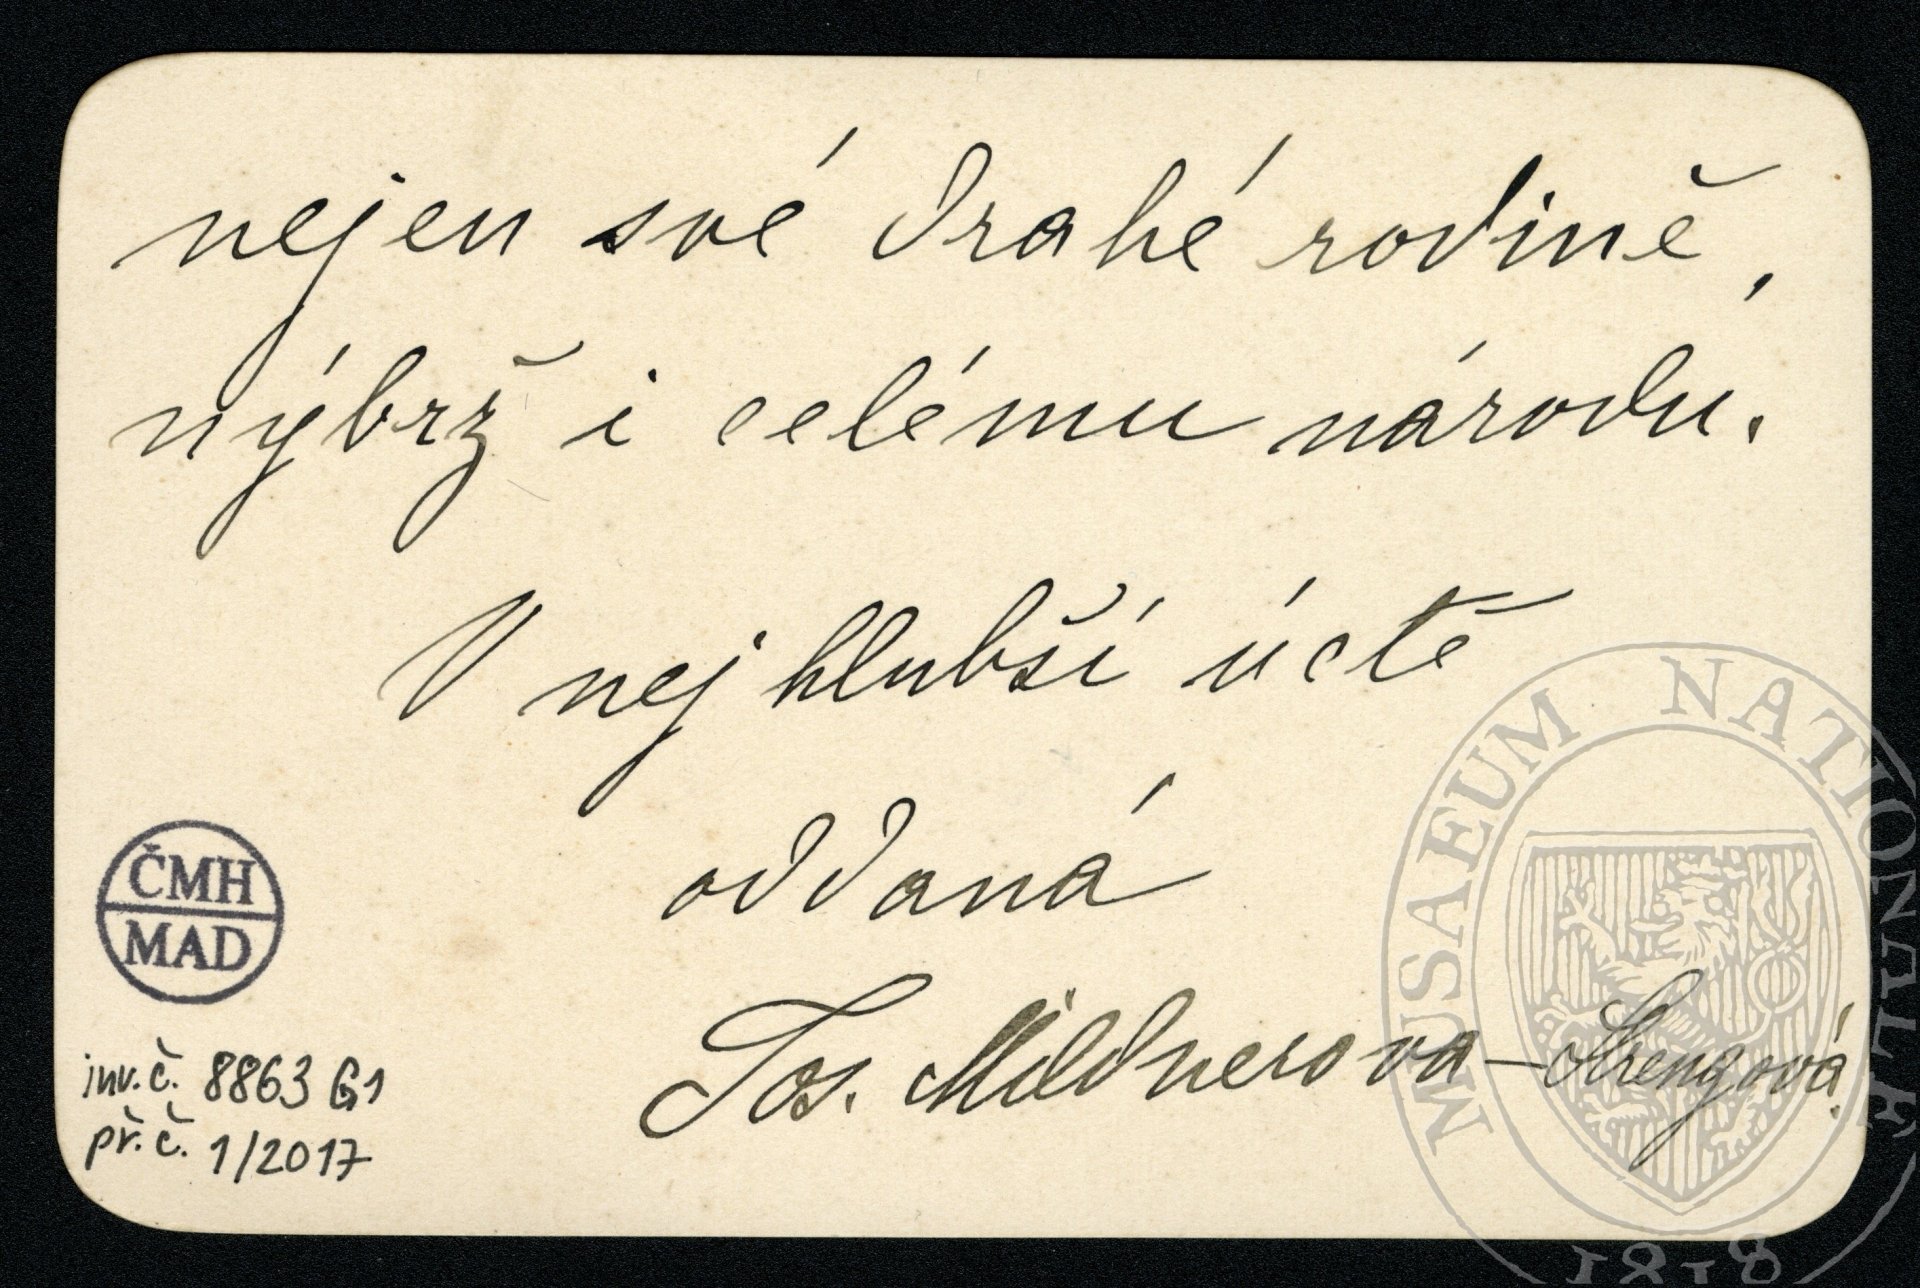 nejen své drahé rodině,
nýbrž i celému národu.
V nejhlubší úctě
oddaná
Jos. Mildnerova-Strengová.
ČMH
MAD
inv.č. 8863 G1
př.č. 1/2017
MUSAEUM NATIONALE
1818